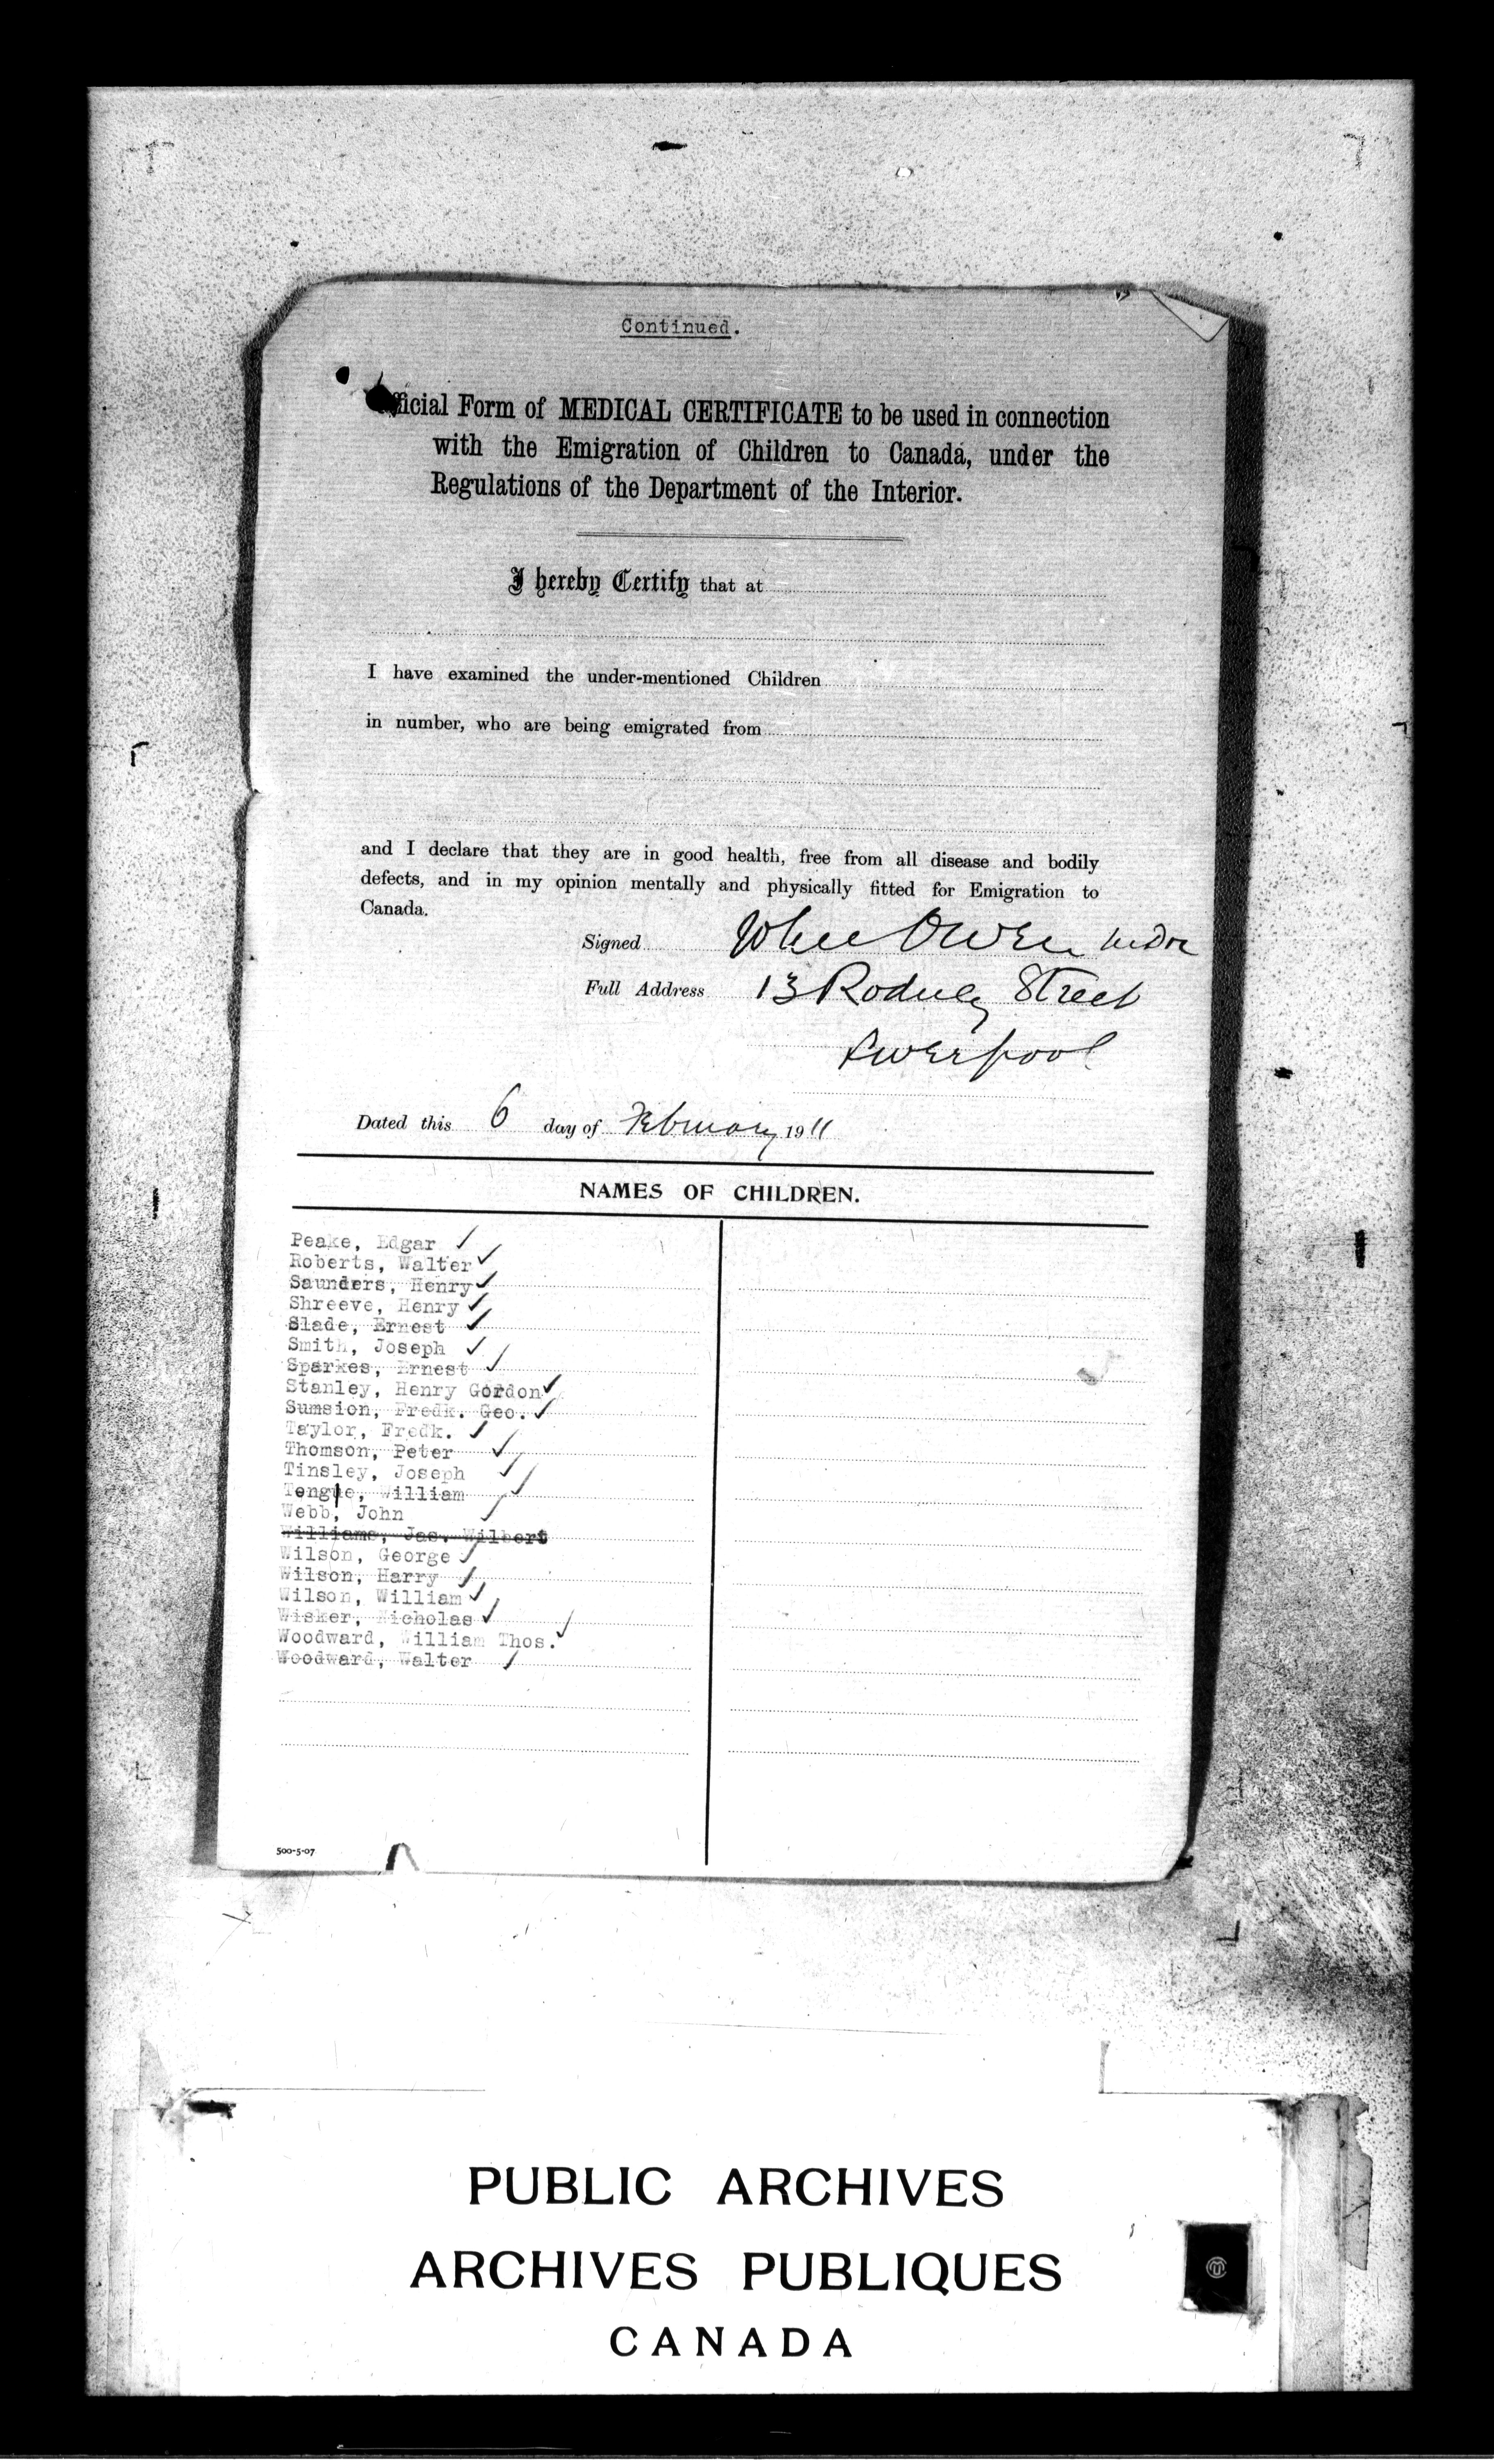 Continued.
Official Form of MEDICAL CERTIFICATE to be used in connection
with the Emigration of Children to Canada, under the
Regulations of the Department of the Interior.
I hereby Certify that at
I have examined the under-mentioned Children
in number, who are being emigrated from
and I declare that they are in good health, free from all disease and bodily
defects, and in my opinion mentally and physically fitted for Emigration to
Canada.
Signed John Owen
Full Address 13 Rodney Street
Liverpool
Dated this 6 day of February 1911
NAMES OF CHILDREN.
Peake, Edgar ✓
Roberts, Walter ✓
Saunders, Henry ✓
Shreeve, Henry ✓
Slade, Ernest ✓
Smith, Joseph ✓
Sparkes, Ernest ✓
Stanley, Henry Gordon ✓
Sumsion, Fredk. Geo. ✓
Taylor, Fredk. ✓
Thomson, Peter ✓
Tinsley, Joseph ✓
Tongue, William ✓
Webb, John ✓
Williams, Jas. Wilbert
Wilson, George ✓
Wilson, Harry ✓
Wilson, William ✓
Wisker, Nicholas ✓
Woodward, William Thos. ✓
Woodward, Walter ✓
500-5-07
PUBLIC ARCHIVES
ARCHIVES PUBLIQUES
CANADA